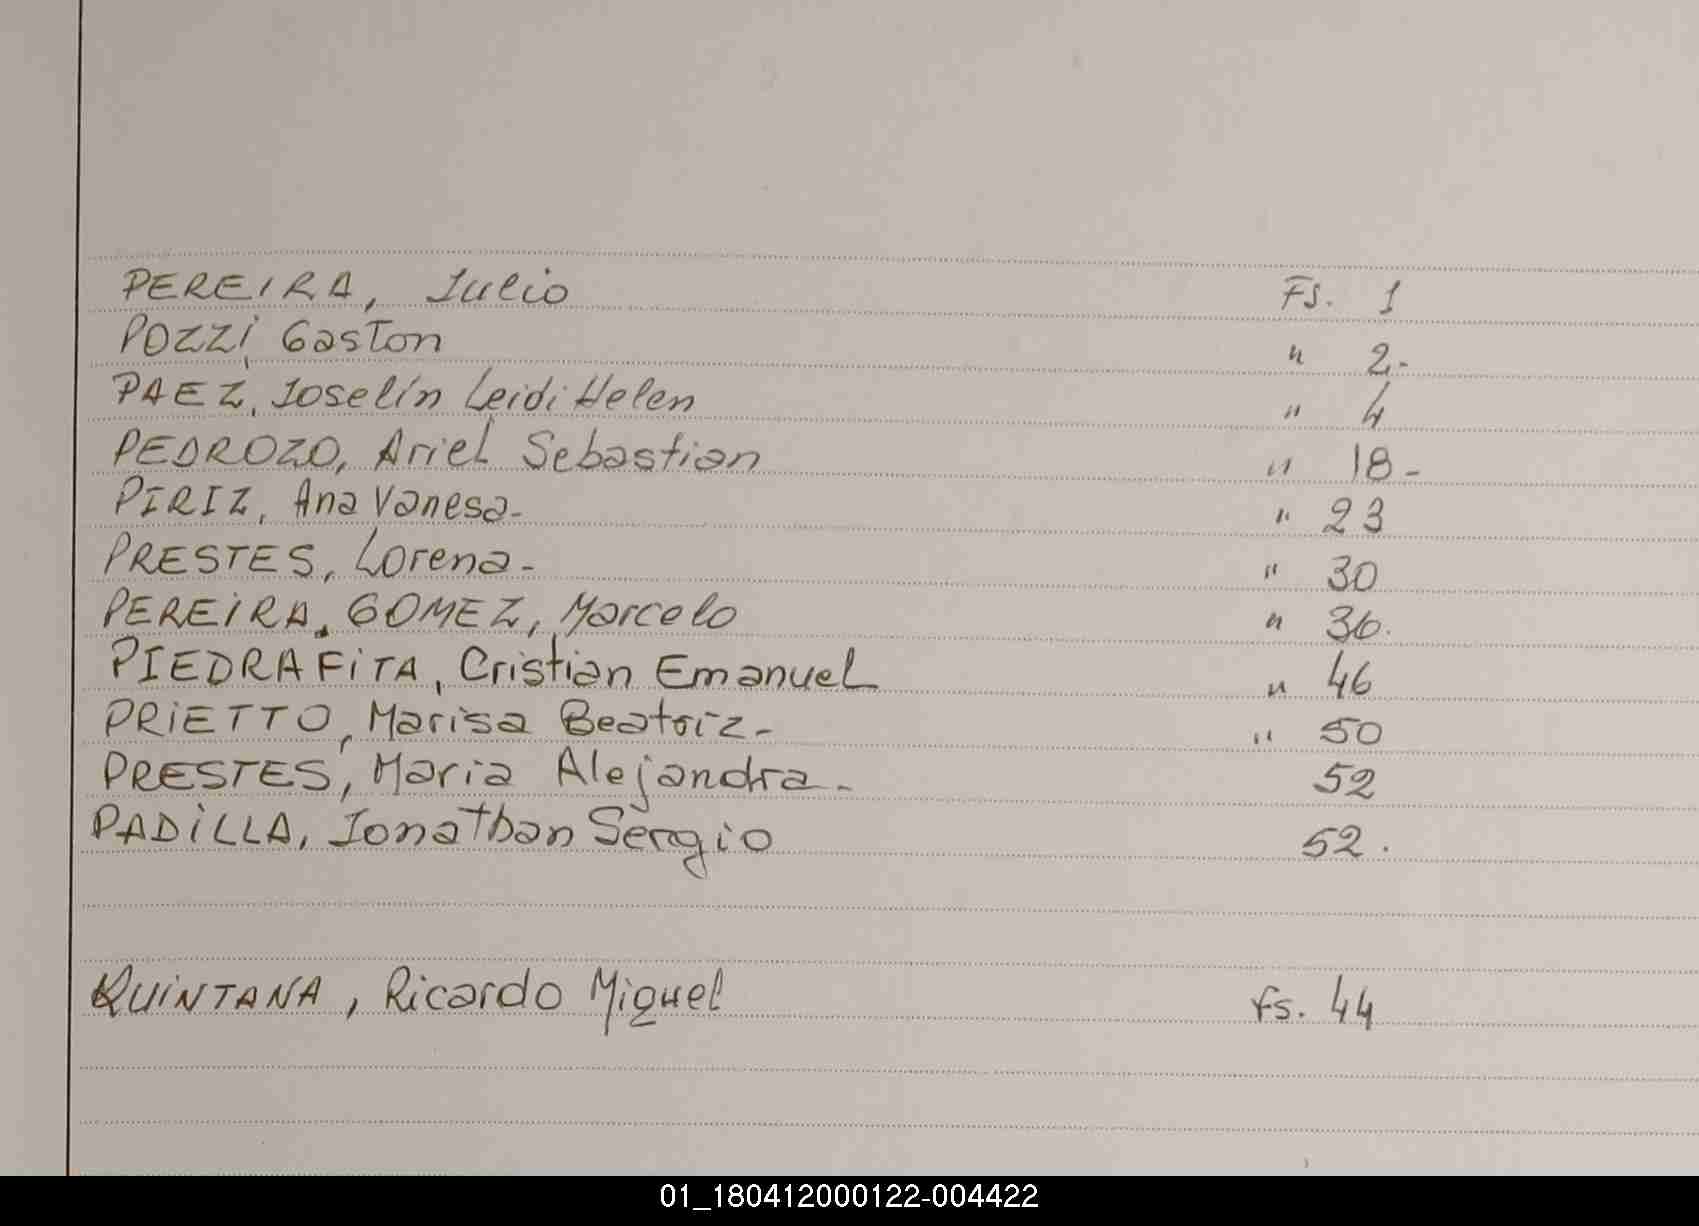 PEREIRA, Julio Fs. 1
POZZI, Gaston " 2.-
PAEZ, Joselín Leidi Helen " 4
PEDROZO, Ariel Sebastian " 18-
PIRIZ, Ana Vanesa- " 23
PRESTES, Lorena- " 30
PEREIRA, GOMEZ, Marcelo " 36.
PIEDRAFITA, Cristian Emanuel " 46
PRIETTO, Marisa Beatriz- " 50
PRESTES, Maria Alejandra- 52
PADILLA, Jonathan Sergio 52.
QUINTANA, Ricardo Miguel Fs. 44
01_180412000122-004422